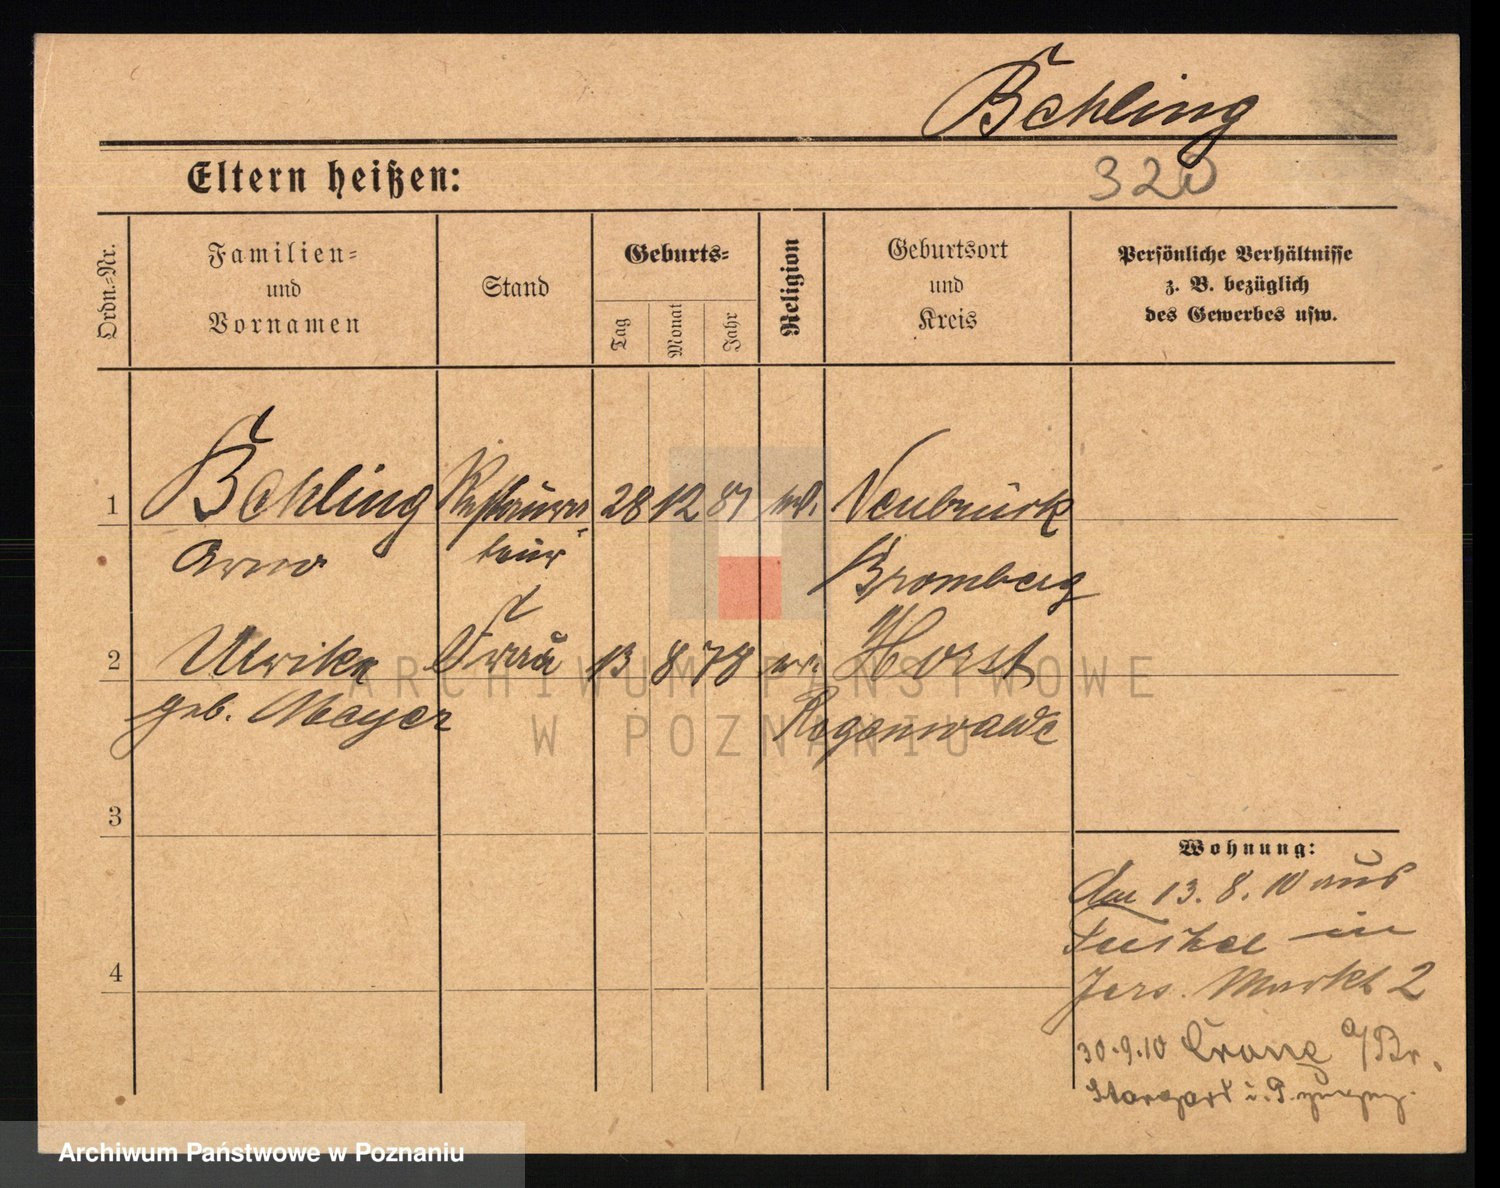 Behling
Eltern heißen:
320
Ordn.-Nr.
Familien-
und
Vornamen
Stand
Geburts-
Tag
Monat
Jahr
Religion
Geburtsort
und
Kreis
Persönliche Verhältnisse
z. B. bezüglich
des Gewerbes usw.
1
Behling Restaura- 28 12 81 Neubrück
Arno teur Bromberg
2
Ulrike Frau 13 8 78 Horst
geb. Meyer Regenwalde
3
4
Wohnung:
Am 13. 8. 10 aus
in
Jers. Markt 2
30.9.10 Crone a/Br.
Stargard i. P.
ARCHIWUM PAŃSTWOWE
W POZNANIU
Archiwum Państwowe w Poznaniu